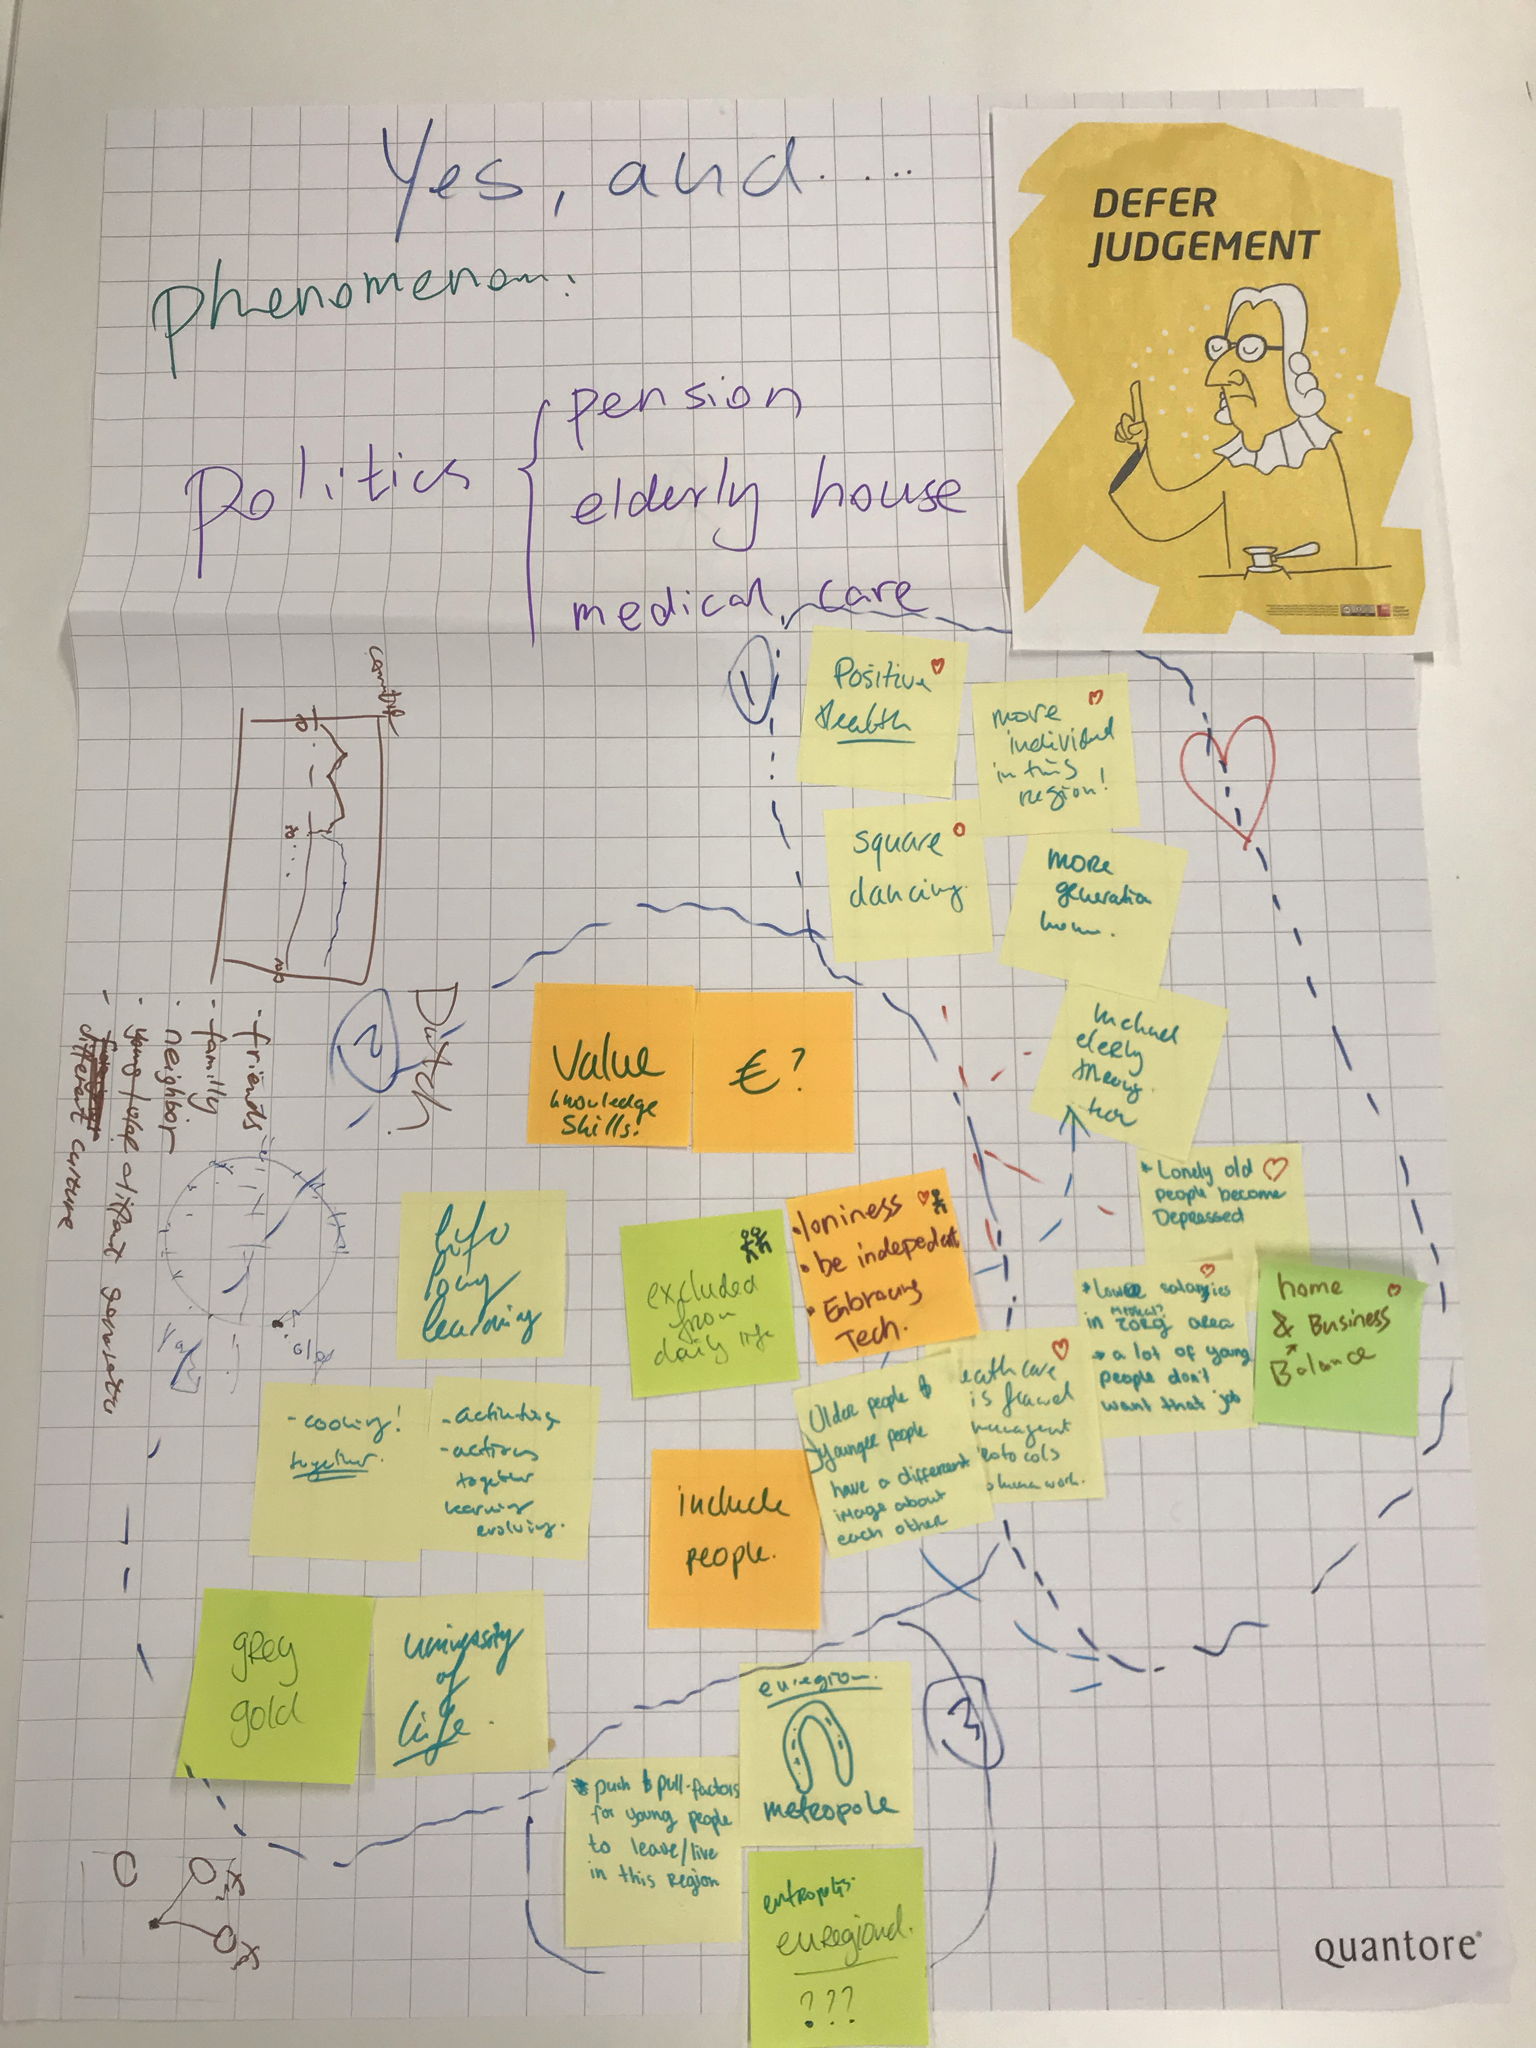 Yes, and.....
DEFER
JUDGEMENT
Phenomenon:
Politics
pension
elderly house
medical care
1
Positive
Health
more
individual
in this
region!
square
dancing
more
generation
home.
* Lonely old
people become
Depressed
* Lower salaries
in zorg area
→ a lot of young
people don't
want that job
home
& Business
Balance
2
Dutch
- friends
- familly
- neighbor
different
culture
old
value
knowledge
skills.
€ ?
Life
long
learning
excluded
from
daily life
• loniness
• be indepedent
• Enbracing
Tech.
Older people &
younger people
have a different
image about
each other
is
rotocols
work.
- cooking!
together.
- activities
- actions
together
learning
evolving.
include
people.
grey
gold
university
of
life.
3
euregion
metropole
* push & pull-factors
for young people
to leave/live
in this region
euregional.
???
quantore